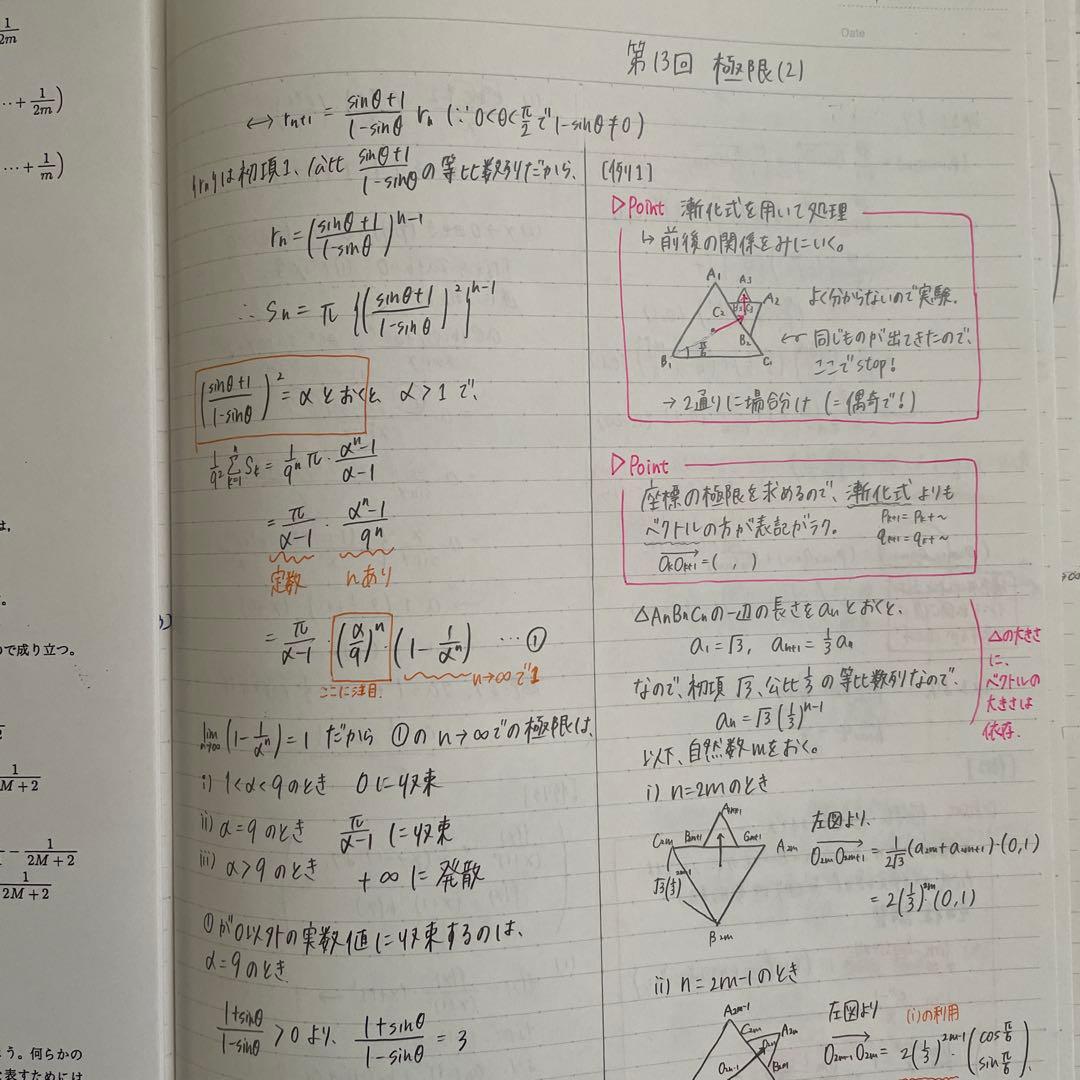 Date
第13回 極限(2)
1/2m
…+ 1/2m)
…+ 1/m)
で成り立つ。
1/2M+2
- 1/2M+2
1/2M+2
う。何らかの
表すためには
⟷ rn+1 = (sinθ+1)/(1-sinθ) rn (∵ 0<θ<π/2で1-sinθ≠0)
{rn}は初項1、公比 (sinθ+1)/(1-sinθ) の等比数列だから、
rn = ((sinθ+1)/(1-sinθ))^(n-1)
∴ Sn = π {((sinθ+1)/(1-sinθ))^2}^(n-1)
((sinθ+1)/(1-sinθ))^2 = α とおくと、α>1 で、
1/9^2 Σ[k=1→n] Sk = 1/9^n π・(α^n-1)/(α-1)
= π/(α-1)・(α^n-1)/9^n
定数 nあり
= π/(α-1)・(α/9)^n・(1-1/α^n) …①
ここに注目 n→∞で1
lim[n→∞](1-1/α^n)=1 だから ①の n→∞での極限は、
i) 1<α<9のとき 0に収束
ii) α=9のとき π/(α-1) に収束
iii) α>9のとき +∞に発散
①が0以外の実数値に収束するのは、
α=9のとき
(1+sinθ)/(1-sinθ) > 0 より、(1+sinθ)/(1-sinθ) = 3
[例1]
▷Point 漸化式を用いて処理
↳ 前後の関係をみにいく。
A1 A3 A2 C2 B3 C3 B2 B1 π/6 C1
よく分からないので実験。
← 同じものが出てきたので、
ここでstop!
→ 2通りに場合分け (=偶奇で!)
▷Point
座標の極限を求めるので、漸化式よりも
ベクトルの方が表記がラク。
Pk+1=Pk+~
qk+1=qk+~
OkOk+1=( , )
△AnBnCnの一辺の長さをanとおくと、
a1=√3, an+1=1/3 an
なので、初項√3、公比1/3の等比数列なので、
an=√3(1/3)^(n-1)
△の大きさ
に、
ベクトルの
大きさは
依存。
以下、自然数mをおく。
i) n=2mのとき
A2m+1 C2m B2m+1 C2m+1 A2m √3(1/3)^(2m-1) B2m
左図より、
O2mO2m+1 = 1/2√3 (a2m+a2m+1)・(0,1)
= 2(1/3)^2m (0,1)
ii) n=2m-1のとき
A2m-1 C2m A2m O2m B2m O2m-1
左図より (i)の利用
O2m-1O2m = 2(1/3)^(2m-1)・(cos π/6 sin π/6)